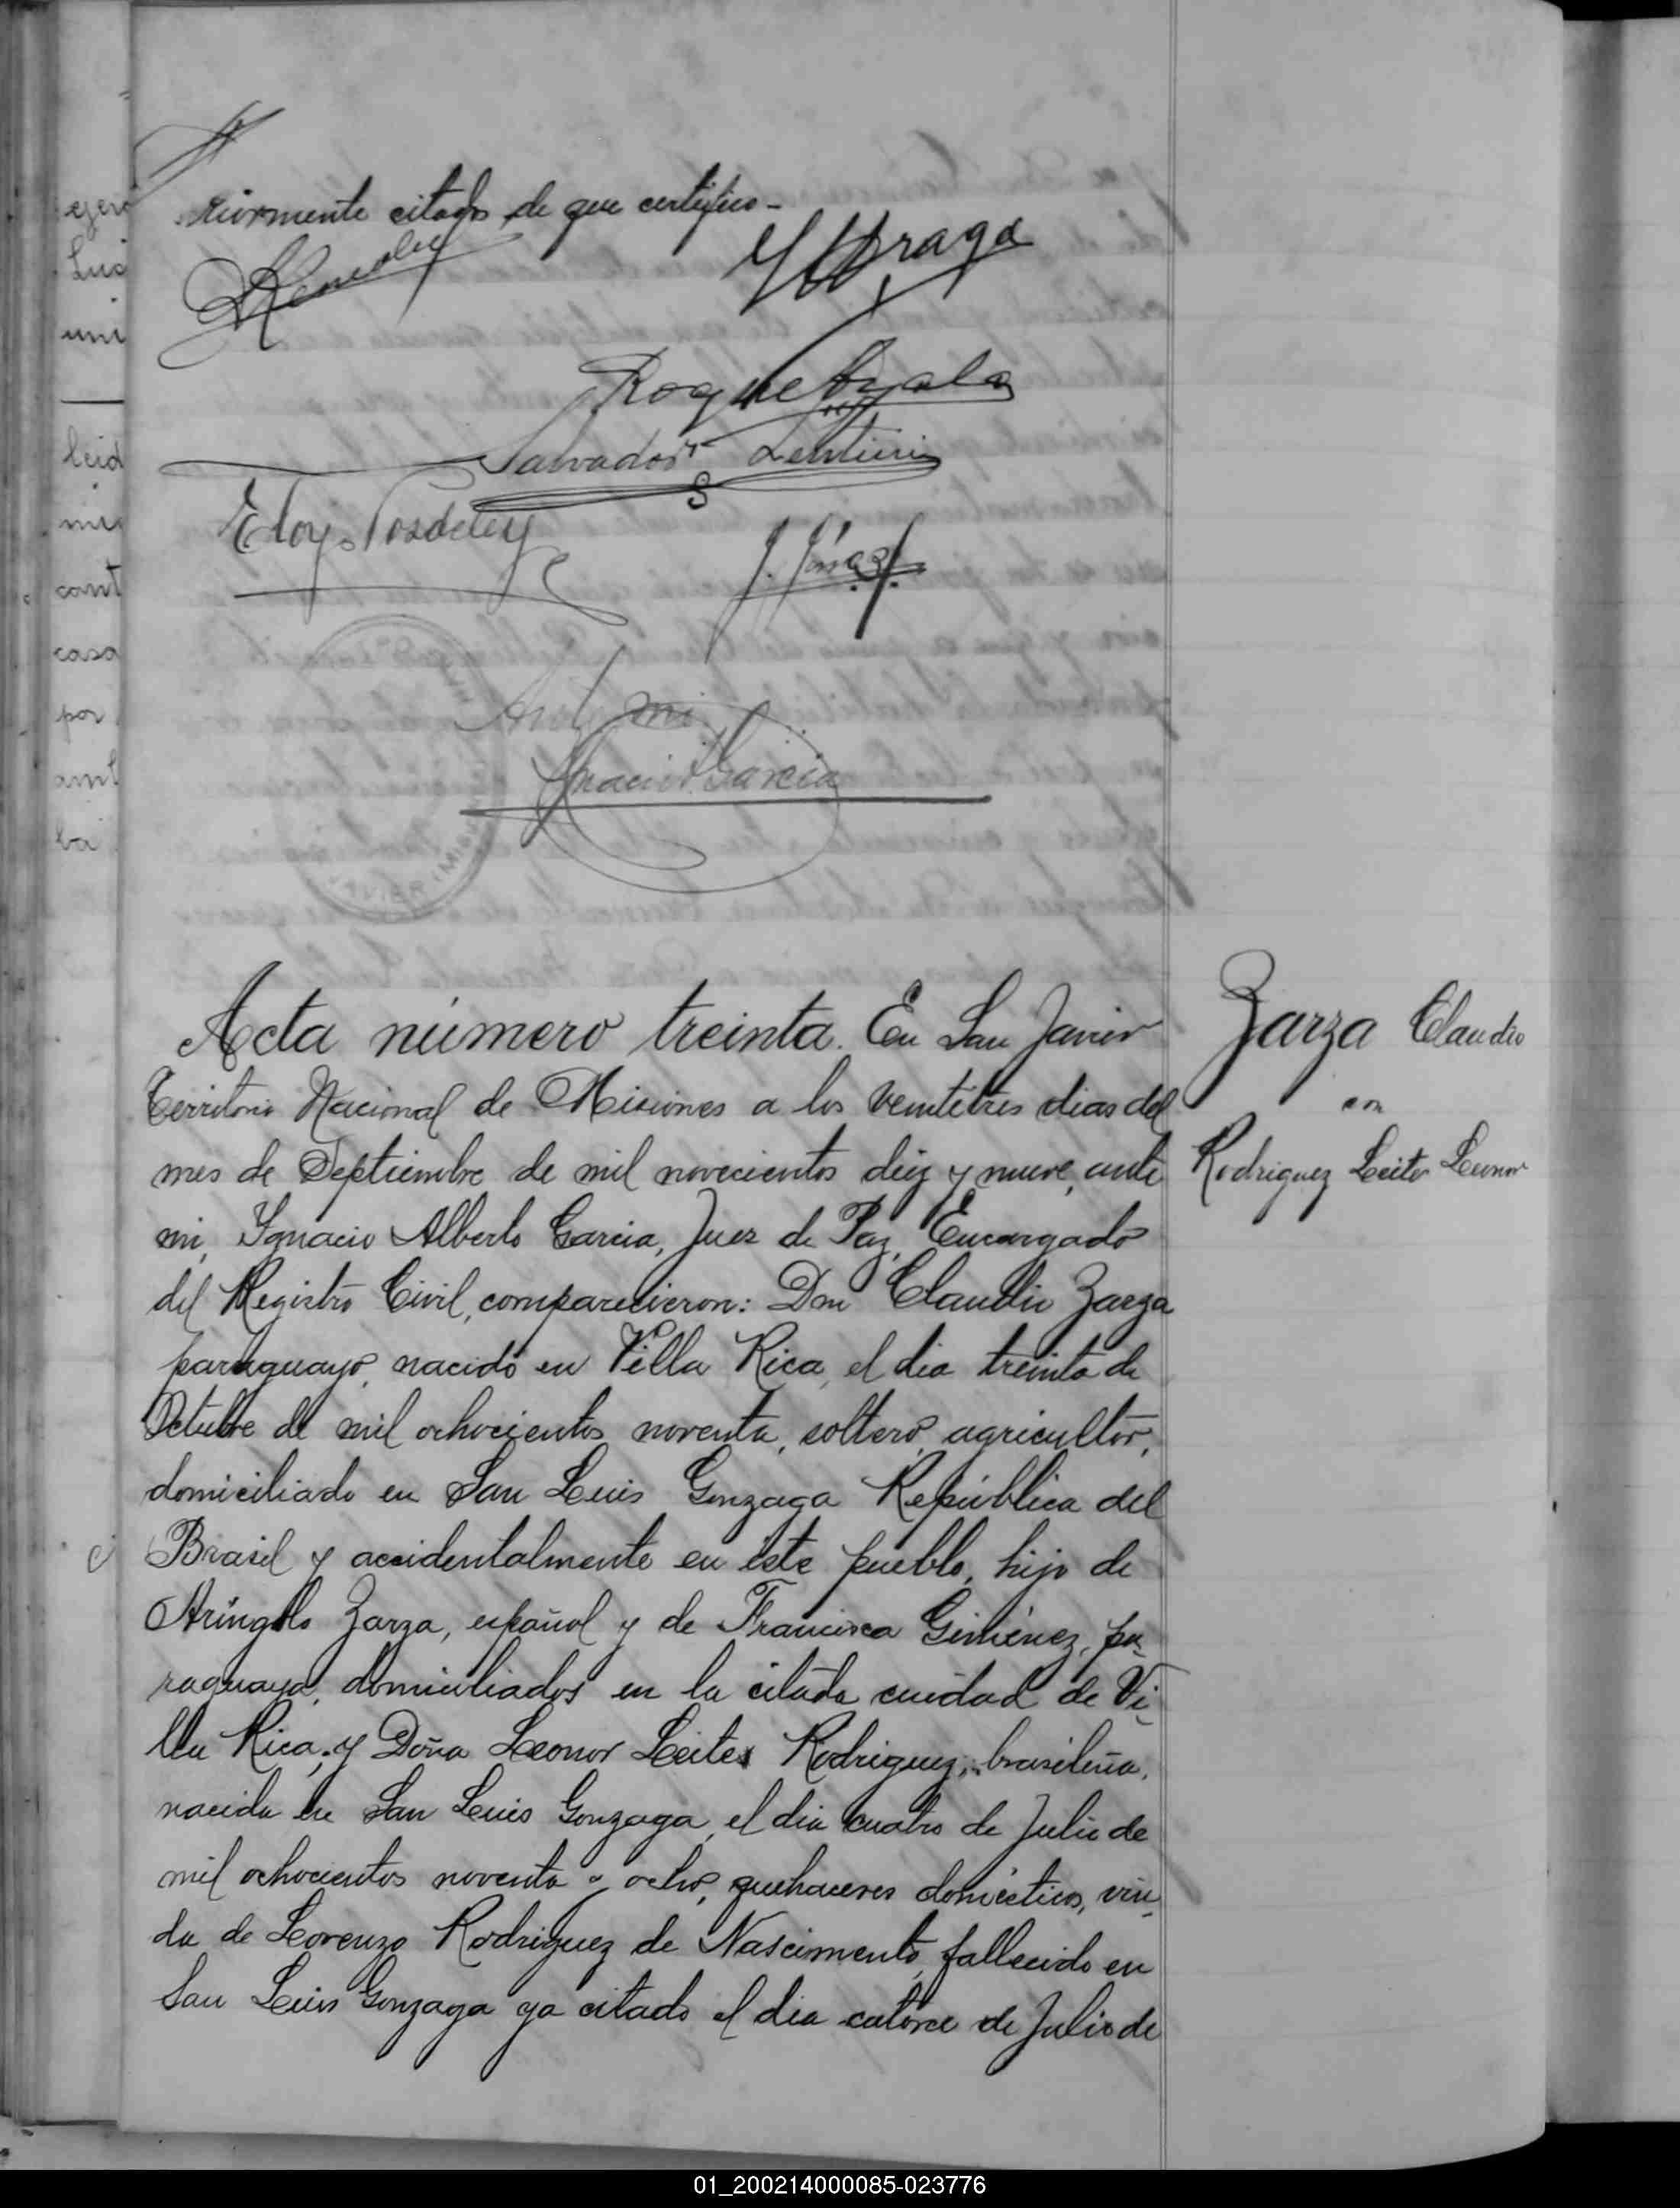 riormente citados de que certifico -
Roque Ayala
Salvador
Eloy
Ante mi
Ignacio A Garcia
Acta número treinta. En San Javier
Territorio Nacional de Misiones a los veintetres dias del
mes de Septiembre de mil novecientos diez y nueve, ante
mi, Ygnacio Alberto Garcia, Juez de Paz, Encargado
del Registro Civil, comparecieron: Don Claudio Zarza
paraguayo, nacido en Villa Rica, el dia treinta de
Octubre de mil ochocientos noventa, soltero, agricultor,
domiciliado en San Luis Gonzaga República del
Brasil y accidentalmente en este pueblo, hijo de
Zarza, español y de Francisca Giménez, pa-
raguaya, domiciliados en la citada cuidad de Vi-
lla Rica; y Doña Leonor Leites Rodriguez, brasileña,
nacida en San Luis Gonzaga, el dia cuatro de Julio de
mil ochocientos noventa y ocho, quehaceres domésticos, viu-
da de Lorenzo Rodriguez de Nascimento, fallecido en
San Luis Gonzaga ya citado el dia catorce de Julio de
Zarza Claudio
con
Rodriguez Leites Leonor
01_200214000085-023776